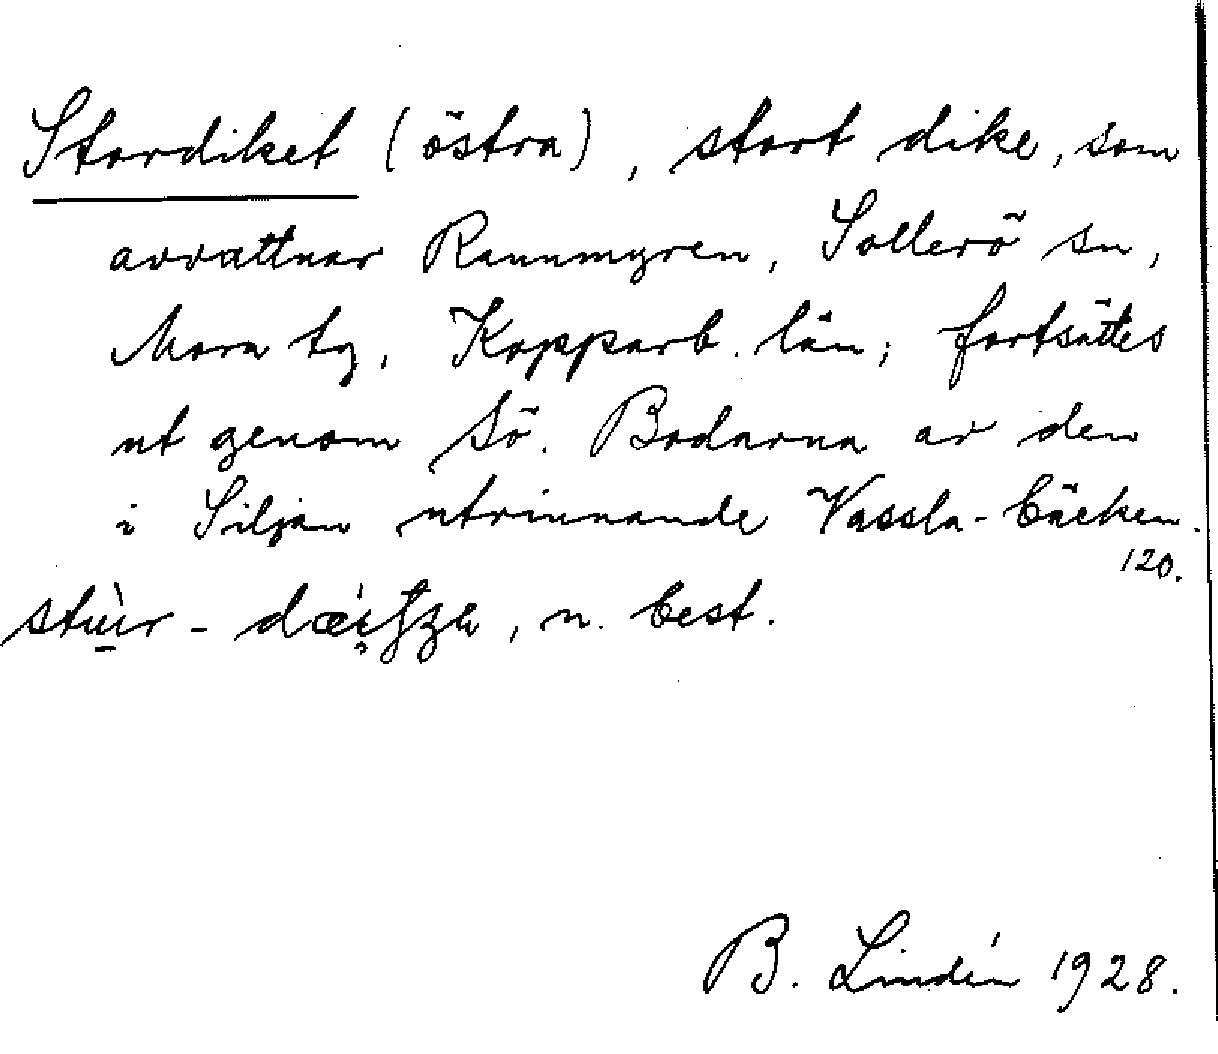 Stordiket (östra), stort dike, som
avvattnar Rannmyren, Sollerö sn,
Mora tg, Kopparb. län; fortsättes
ut genom Sö. Bodarna av den
i Siljan utrinnande Vassla-bäcken.
120.
n. best.
B. Lindén 1928.